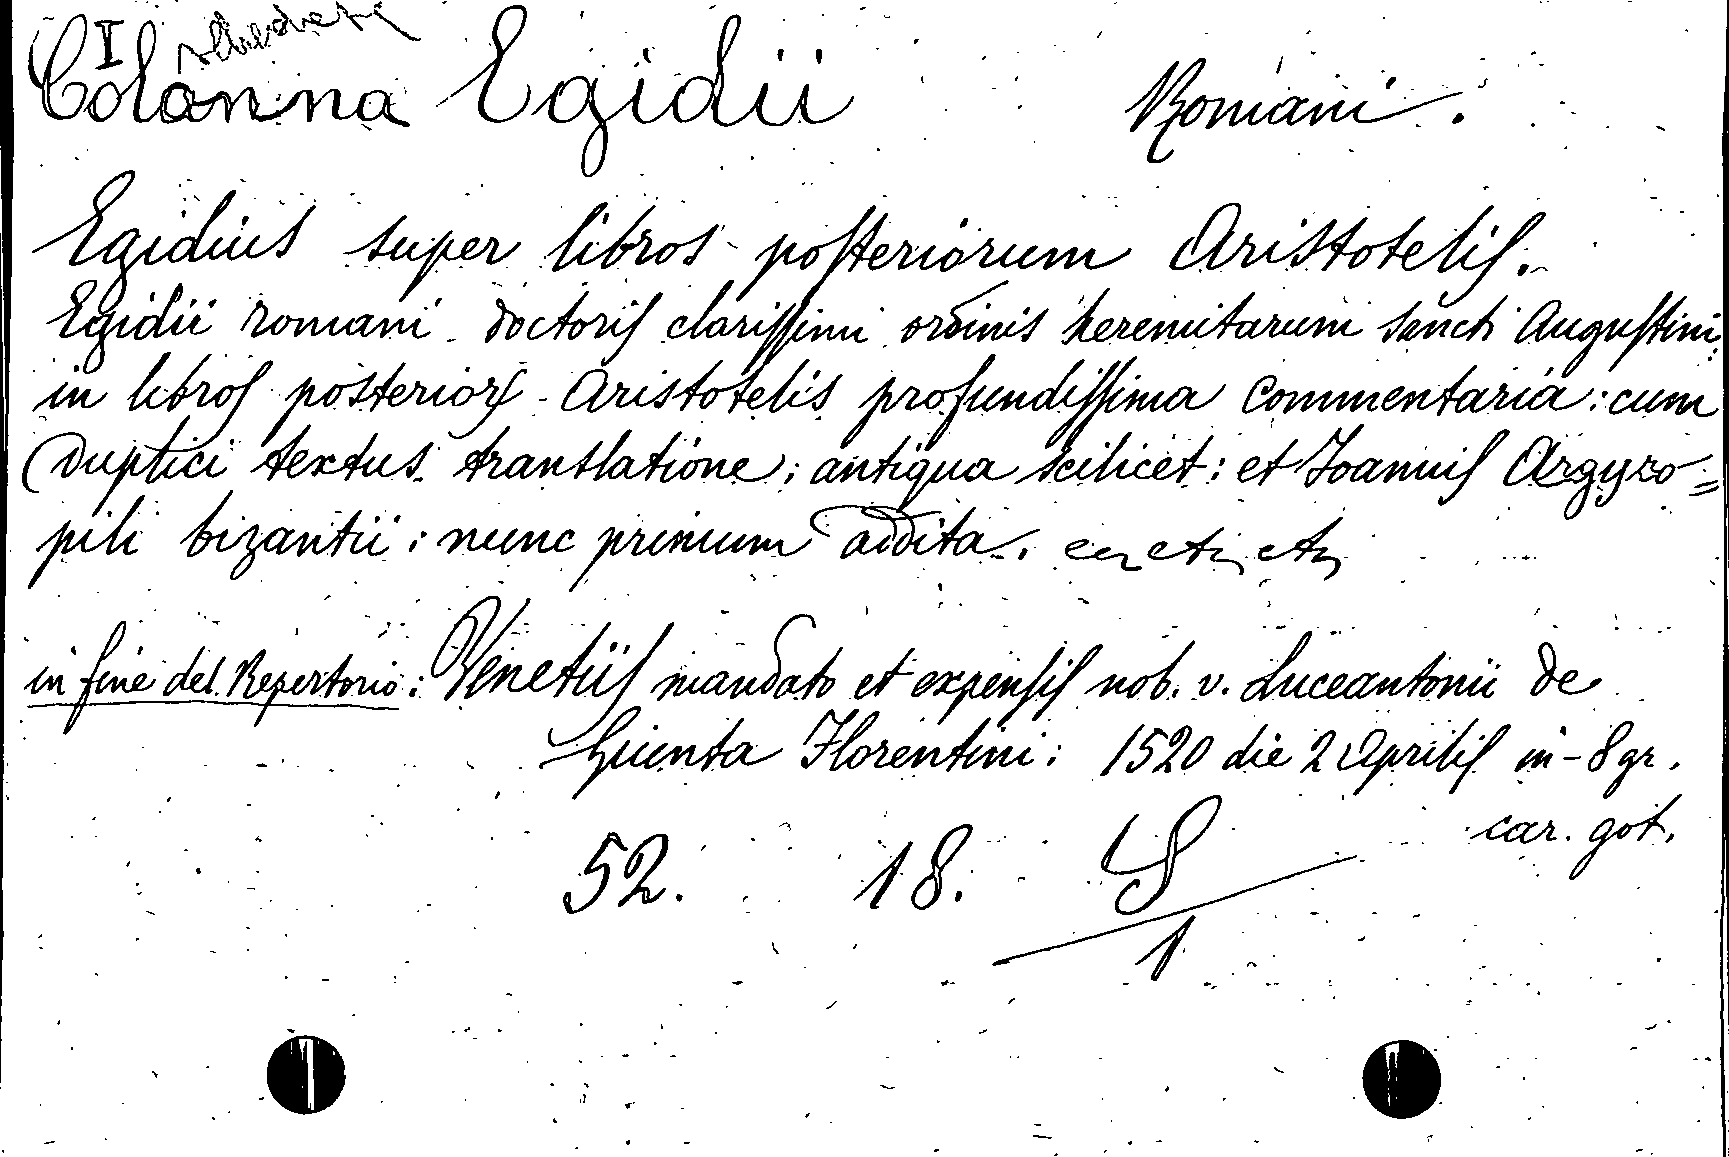 I
Colonna Egidii Romani.
Egidius super libros posteriorum Aristotelis.
Egidii romani doctoris clarissimi ordinis heremitarum sancti Augustini:
in libros posteriorꝝ Aristotelis profundissima commentaria: cum
duplici textus translatione: antiqua scilicet: et Joannis Argyro=
pili bizantii: nunc primum addita.
in fine del Repertorio: Venetiis mandato et expensis nob. v. Luceantonii de
Giunta Florentini: 1520 die 2 Aprilis in-8 gr.
car. got.
52. 18. S
1